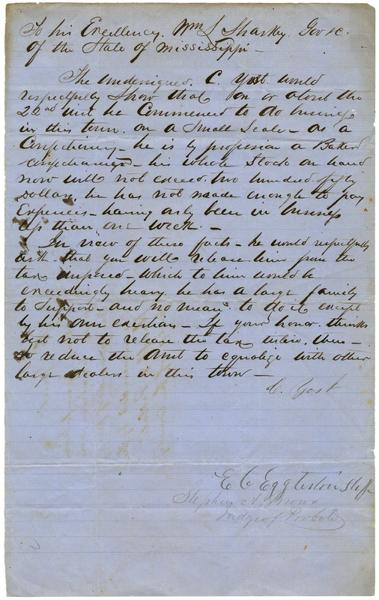 To his Excellency, Wm L Sharkey, Gov &c.
of the State of Mississippi –
The undersigned, C. Yost would
respectfully show that on or about the
22nd inst he Commenced to do business
in this town, on a Small Scale – as a
Confectionary – he is by profession a Baker
– his whole Stock on hand
now will not exceed two hundred fifty
dollars. he has not made enough to pay
Expences – having only been in business
less than one week –
In view of these facts – he would respectfully
ask that you will release him from the
tax imposed – which to him would be
exceedingly heavy. he has a large family
to support – and no means to do it except
by his own exertions – If your honor thinks
best not to release the tax entire, then –
to reduce the amt to equalize with other
large dealers in this town –
C. Yost
E C Eggleston Shff
Stephen A. Brown
Judge of Probate